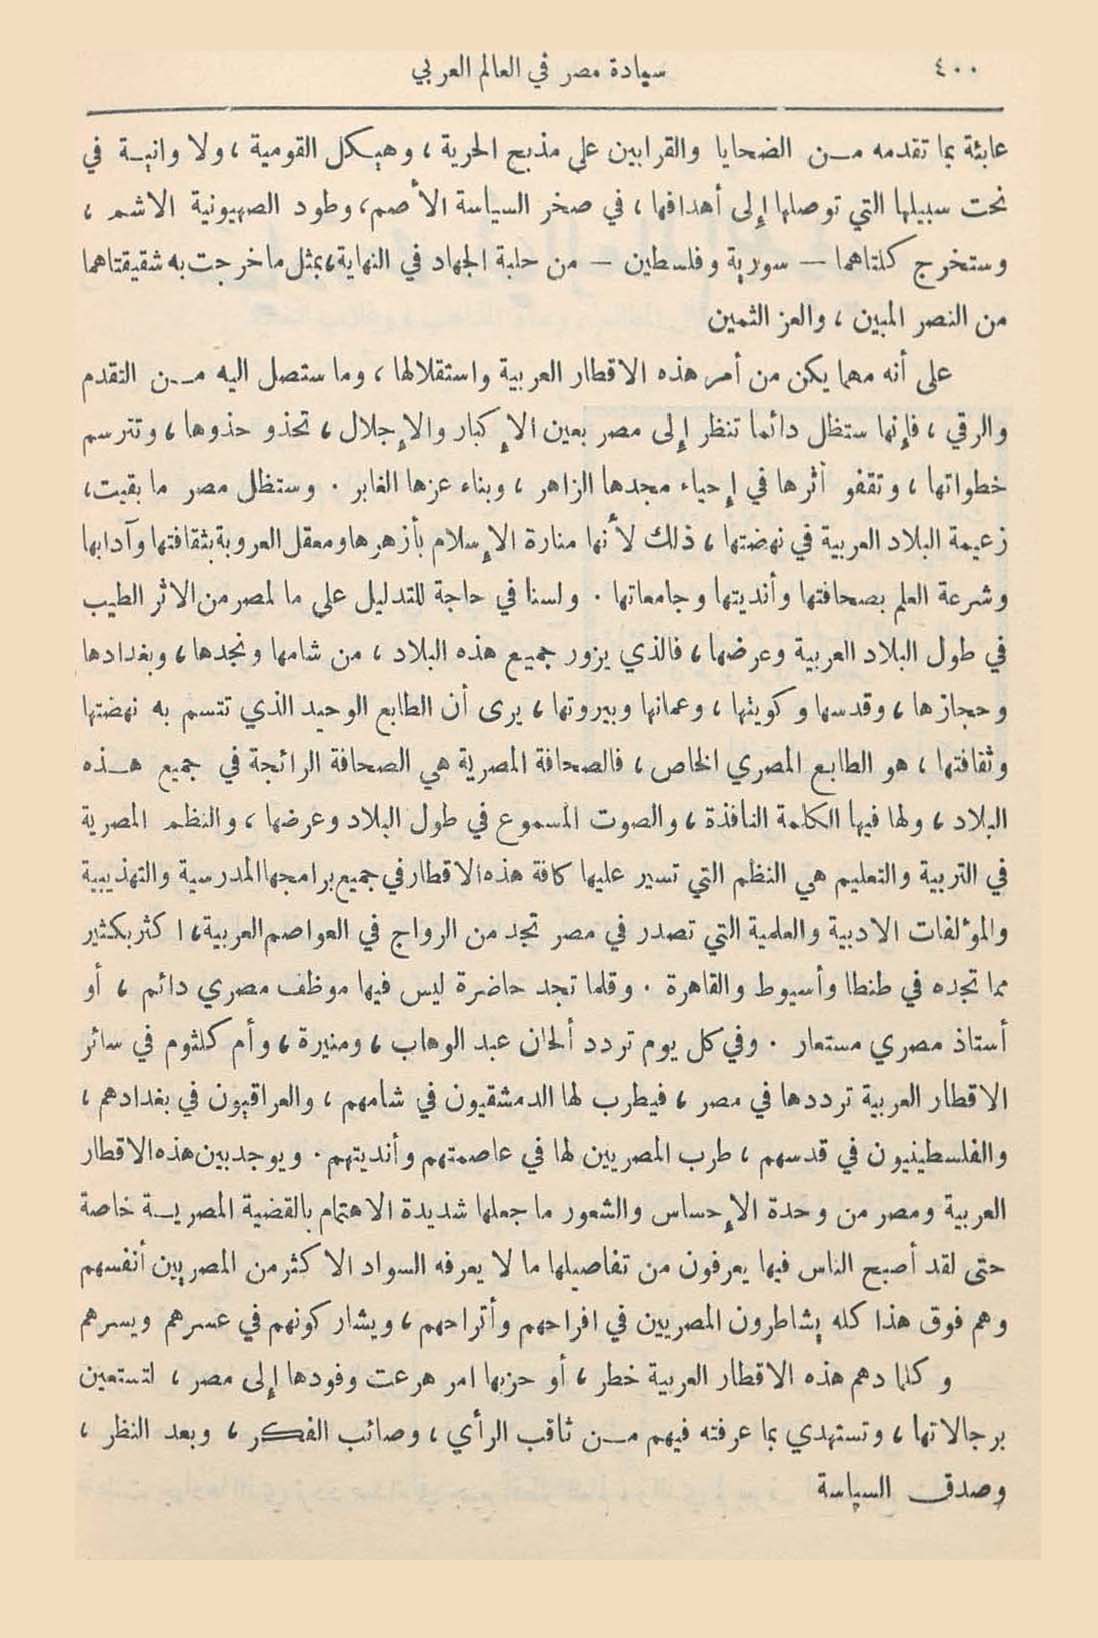 ٤٠٠ سيادة مصر في العالم العربي
عابئة بما تقدمه من الضحايا والقرابين على مذبح الحرية ، وهيكل القومية ، ولا وانية في
نحت سبيلها التي توصلها إلى أهدافها ، في صخر السياسة الأصم ، وطود الصهيونية الاشم ،
وستخرج كلتاهما – سورية وفلسطين – من حلبة الجهاد في النهاية ، بمثل ما خرجت به شقيقتاهما
من النصر المبين ، والعز الثمين
على أنه مهما يكن من أمر هذه الاقطار العربية واستقلالها ، وما ستصل اليه من التقدم
والرقي ، فإنها ستظل دائما تنظر إلى مصر بعين الإكبار والإجلال ، تحذو حذوها ، وتترسم
خطواتها ، وتقفو أثرها في إحياء مجدها الزاهر ، وبناء عزها الغابر . وستظل مصر ما بقيت ،
زعيمة البلاد العربية في نهضتها ، ذلك لأنها منارة الإسلام بأزهرها ومعقل العروبة بثقافتها وآدابها
وشرعة العلم بصحافتها وأنديتها وجامعاتها . ولسنا في حاجة للتدليل على ما لمصر من الاثر الطيب
في طول البلاد العربية وعرضها ، فالذي يزور جميع هذه البلاد ، من شامها ونجدها ، وبغدادها
وحجازها ، وقدسها وكويتها ، وعمانها وبيروتها ، يرى أن الطابع الوحيد الذي تتسم به نهضتها
وثقافتها ، هو الطابع المصري الخاص ، فالصحافة المصرية هي الصحافة الرائجة في جميع هذه
البلاد ، ولها فيها الكلمة النافذة ، والصوت المسموع في طول البلاد وعرضها ، والنظم المصرية
في التربية والتعليم هي النظم التي تسير عليها كافة هذه الاقطار في جميع برامجها المدرسية والتهذيبية
والمؤلفات الادبية والعلمية التي تصدر في مصر تجد من الرواج في العواصم العربية ، اكثر بكثير
مما تجده في طنطا وأسيوط والقاهرة . وقلما تجد حاضرة ليس فيها موظف مصري دائم ، أو
أستاذ مصري مستعار . وفي كل يوم تردد ألحان عبد الوهاب ، ومنيرة ، وأم كلثوم في سائر
الاقطار العربية ترددها في مصر ، فيطرب لها الدمشقيون في شامهم ، والعراقيون في بغدادهم ،
والفلسطينيون في قدسهم ، طرب المصريين لها في عاصمتهم وأنديتهم . ويوجد بين هذه الاقطار
العربية ومصر من وحدة الإحساس والشعور ما جعلها شديدة الاهتمام بالقضية المصرية خاصة
حتى لقد أصبح الناس فيها يعرفون من تفاصيلها ما لا يعرفه السواد الاكثر من المصريين أنفسهم
وهم فوق هذا كله يشاطرون المصريين في افراحهم وأتراحهم ، ويشاركونهم في عسرهم ويسرهم
وكلما دهم هذه الاقطار العربية خطر ، أو حزبها امر هرعت وفودها إلى مصر ، لتستعين
برجالاتها ، وتستهدي بما عرفته فيهم من ثاقب الرأي ، وصائب الفكر ، وبعد النظر ،
وصدق السياسة